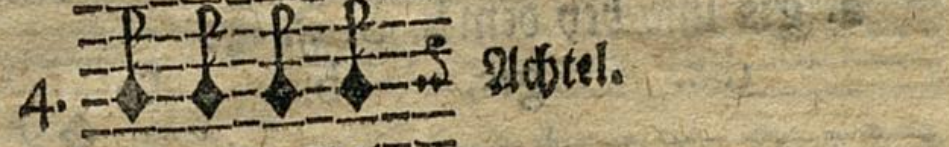 4. Achtel.